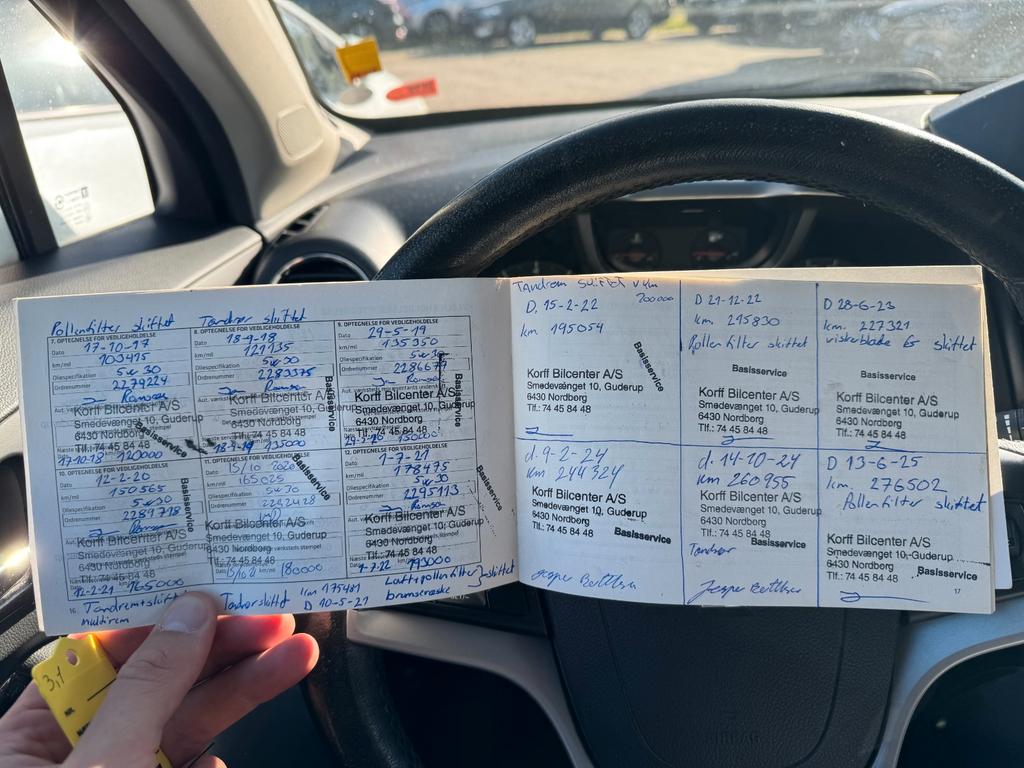 Pollenfilter skiftet
Tændrør skiftet
7. OPTEGNELSE FOR VEDLIGEHOLDELSE
Dato 17-10-17
km/mil 103475
Oliespecifikation 5w30
Ordrenummer 2279224
Korff Bilcenter A/S
Smedevænget 10, Guderup
6430 Nordborg
Tlf.: 74 45 84 48
Basisservice
17-10-18 120000
8. OPTEGNELSE FOR VEDLIGEHOLDELSE
Dato 18-9-18
km/mil 121135
Oliespecifikation 5w30
Ordrenummer 2283375
Korff Bilcenter A/S
Smedevænget 10, Guderup
6430 Nordborg
Tlf.: 74 45 84 48
Basisservice
18-9-19 135000
9. OPTEGNELSE FOR VEDLIGEHOLDELSE
Dato 29-5-19
km/mil 135350
Oliespecifikation 5w30
Ordrenummer 2286677
Korff Bilcenter A/S
Smedevænget 10, Guderup
6430 Nordborg
Tlf.: 74 45 84 48
Basisservice
150000
10. OPTEGNELSE FOR VEDLIGEHOLDELSE
Dato 12-2-20
km/mil 150565
Oliespecifikation 5w30
Ordrenummer 2289718
Korff Bilcenter A/S
Smedevænget 10, Guderup
6430 Nordborg
Tlf.: 74 45 84 48
Basisservice
12-2-21 165000
11. OPTEGNELSE FOR VEDLIGEHOLDELSE
Dato 15/10 2020
km/mil 165025
Oliespecifikation 5w30
Ordrenummer 2292428
Korff Bilcenter A/S
Smedevænget 10, Guderup
6430 Nordborg
Tlf.: 74 45 84 48
Basisservice
180000
12. OPTEGNELSE FOR VEDLIGEHOLDELSE
Dato 1-7-21
km/mil 178475
Oliespecifikation 5w30
Ordrenummer 2295113
Korff Bilcenter A/S
Smedevænget 10, Guderup
6430 Nordborg
Tlf.: 74 45 84 48
Basisservice
1-7-22 193000
16
multirem
km 175481
D 10-5-21
Luft+pollenfilter
skiftet
bremsevæske
Tandrem skiftet
200000
D. 15-2-22
km. 195054
Basisservice
Korff Bilcenter A/S
Smedevænget 10, Guderup
6430 Nordborg
Tlf.: 74 45 84 48
D 21-12-22
km. 215830
Pollenfilter skiftet
Basisservice
Korff Bilcenter A/S
Smedevænget 10, Guderup
6430 Nordborg
Tlf.: 74 45 84 48
D 28-6-23
km. 227321
viskerblade skiftet
Basisservice
Korff Bilcenter A/S
Smedevænget 10, Guderup
6430 Nordborg
Tlf.: 74 45 84 48
d. 9-2-24
km 244324
Korff Bilcenter A/S
Smedevænget 10, Guderup
6430 Nordborg
Tlf.: 74 45 84 48
Basisservice
d. 14-10-24
km 260955
Korff Bilcenter A/S
Smedevænget 10, Guderup
6430 Nordborg
Tlf.: 74 45 84 48
Tændrør
Basisservice
D 13-6-25
km. 276502
Pollenfilter skiftet
Korff Bilcenter A/S
Smedevænget 10, Guderup
6430 Nordborg
Tlf.: 74 45 84 48
Basisservice
17
3,1
NR.